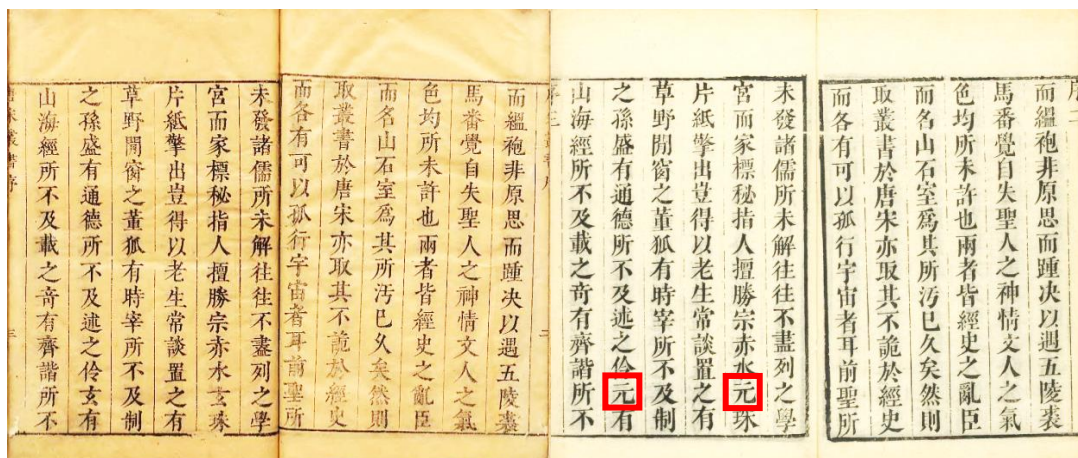 序二
而縕袍非原思而踵决以遇五陵裘
馬番覺自失聖人之神情文人之氣
色均所未許也兩者皆經史之亂臣
而名山石室爲其所汚已久矣然則
取叢書於唐宋亦取其不詭於經史
而各有可以孤行宇宙者耳前聖所
未發諸儒所未解往往不盡列之學
宮而家標秘指人擅勝宗赤水元珠
片紙擎出豈得以老生常談置之有
草野閒窗之董狐有時宰所不及制
之孫盛有通德所不及述之伶元有
山海經所不及載之奇有齊諧所不
序三
而縕袍非原思而踵决以遇五陵裘
馬番覺自失聖人之神情文人之氣
色均所未許也兩者皆經史之亂臣
而名山石室爲其所汚已久矣然則
取叢書於唐宋亦取其不詭於經史
而各有可以孤行宇宙者耳前聖所
未發諸儒所未解往往不盡列之學
宮而家標秘指人擅勝宗赤水玄珠
片紙擎出豈得以老生常談置之有
草野閒窗之董狐有時宰所不及制
之孫盛有通德所不及述之伶玄有
山海經所不及載之奇有齊諧所不